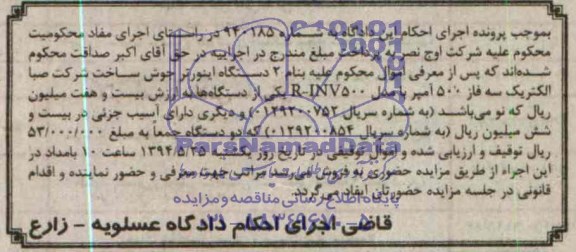 بموجب پرونده اجرای احکام این دادگاه به شماره ۹۴۰۱۸۵ در راستای اجرای مفاد محکومیت
محکوم علیه شرکت اوج نصر به پرداخت مبلغ مندرج در اجراییه در حق آقای اکبر صداقت محکوم
شده‌اند که پس از معرفی اموال محکوم علیه بنام ۲ دستگاه اینورتر جوش ساخت شرکت صبا
الکتریک سه فاز ۵۰۰ آمپر با مدل R-INV۵۰۰ یکی از دستگاه‌ها به ارزش بیست و هفت میلیون
ریال که نو می‌باشد (به شماره سریال ۰۱۲۹۲۰۰۷۵۲) و دیگری دارای آسیب جزئی در بیست و
شش میلیون ریال (به شماره سریال ۰۱۲۹۲۰۰۸۵۴) که دو دستگاه جمعا به مبلغ ۵۳/۰۰۰/۰۰۰
ریال توقیف و ارزیابی شده و اموال توقیفی در تاریخ روز یکشنبه ۱۳۹۴/۵/۲۵ ساعت ۱۰ بامداد در
این اجراء از طریق مزایده حضوری به فروش می‌رسد مراتب جهت معرفی و حضور نماینده و اقدام
قانونی در جلسه مزایده حضورتان ایفاد می‌گردد.
قاضی اجرای احکام دادگاه عسلویه - زارع
ParsNamadData
پایگاه اطلاع رسانی مناقصه و مزایده